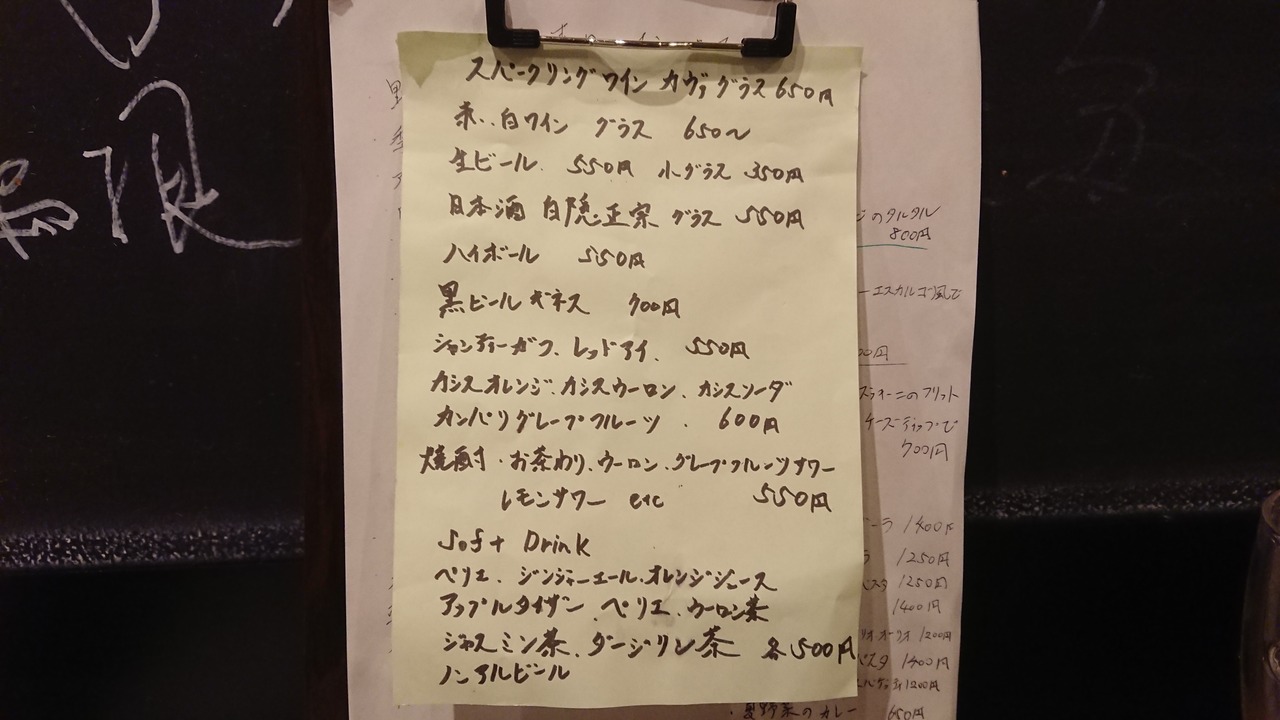 スパークリングワイン カヴァ グラス 650円
赤、白ワイン グラス 650〜
生ビール 550円 小グラス 350円
日本酒 白隠正宗 グラス 550円
ハイボール 550円
黒ビール ギネス 700円
シャンディーガフ、レッドアイ、 550円
カシスオレンジ、カシスウーロン、カシスソーダ
カンパリグレープフルーツ 、 600円
焼酎・お茶わり、ウーロン、グレープフルーツサワー
レモンサワー etc 550円
Soft Drink
ペリエ、ジンジャーエール、オレンジジュース
アップルタイザー、ペリエ、ウーロン茶
ジャスミン茶、ダージリン茶 各500円
ノンアルビール
のタルタル
800円
エスカルゴ風で
00円
のフリット
チーズディップで
700円
ラ 1400円
1250円
スタ 1250円
1400円
リオオーリオ 1200円
パスタ 1400円
1200円
・夏野菜のカレー 650円
限